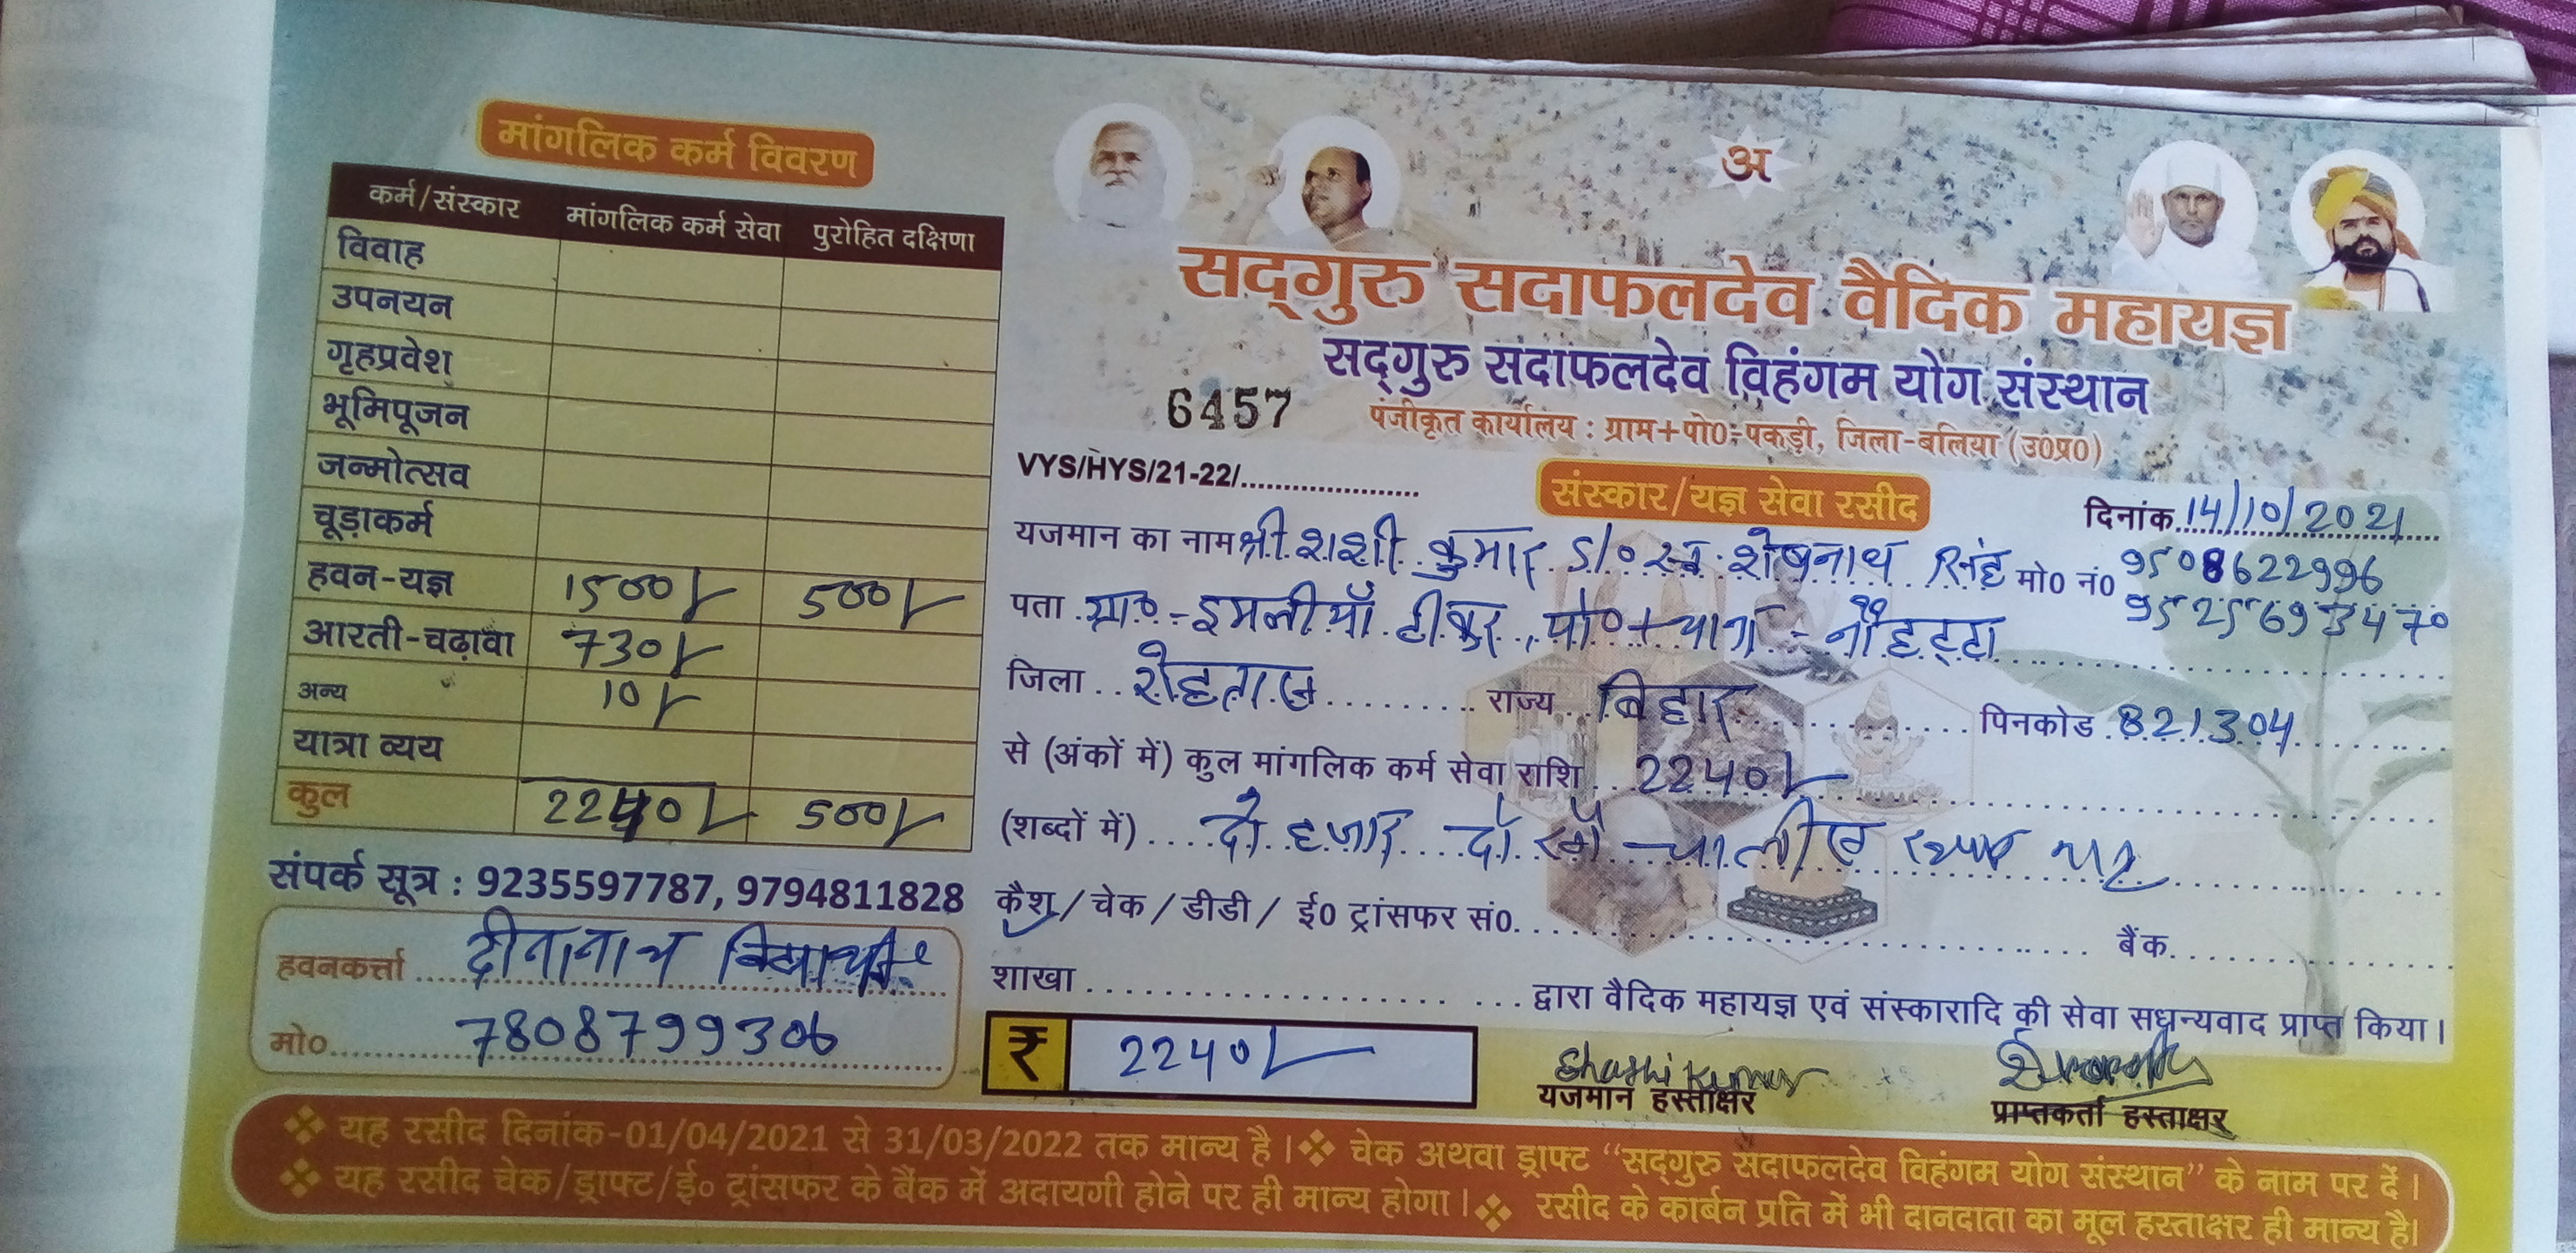 मांगलिक कर्म विवरण
कर्म/संस्कार मांगलिक कर्म सेवा पुरोहित दक्षिणा
विवाह
उपनयन
गृहप्रवेश
भूमिपूजन
जन्मोत्सव
चूड़ाकर्म
हवन-यज्ञ 1500/- 500/-
आरती-चढ़ावा 730/-
अन्य 10/-
यात्रा व्यय
कुल 2240/- 500/-
संपर्क सूत्र : 9235597787, 9794811828
हवनकर्त्ता दीनानाथ
मो० 7808799306
अ
सद्‌गुरु सदाफलदेव वैदिक महायज्ञ
सद्‌गुरु सदाफलदेव विहंगम योग संस्थान
6457
पंजीकृत कार्यालय : ग्राम+पो०-पकड़ी, जिला-बलिया (उ०प्र०)
VYS/HYS/21-22/
संस्कार/यज्ञ सेवा रसीद
दिनांक 14/10/2021
यजमान का नाम श्री शशी कुमार S/o स्व. शेषनाथ सिंह मो० नं० 9508622996
9525693470
पता ग्रा०-इमलीयाँ टीकर, पो०+थाना-नौहट्टा
जिला रोहतास राज्य बिहार पिनकोड 821304
से (अंकों में) कुल मांगलिक कर्म सेवा राशि 2240/-
(शब्दों में) दो हजार दो सौ चालीस
कैश/चेक/डीडी/ ई० ट्रांसफर सं० बैंक
शाखा द्वारा वैदिक महायज्ञ एवं संस्कारादि की सेवा सधन्यवाद प्राप्त किया।
₹ 2240/-
Shashi Kumar
यजमान हस्ताक्षर प्राप्तकर्ता हस्ताक्षर
❖ यह रसीद दिनांक-01/04/2021 से 31/03/2022 तक मान्य है। ❖ चेक अथवा ड्राफ्ट “सद्‌गुरु सदाफलदेव विहंगम योग संस्थान” के नाम पर दें।
❖ यह रसीद चेक/ड्राफ्ट/ई० ट्रांसफर के बैंक में अदायगी होने पर ही मान्य होगा। ❖ रसीद के कार्बन प्रति में भी दानदाता का मूल हस्ताक्षर ही मान्य है।